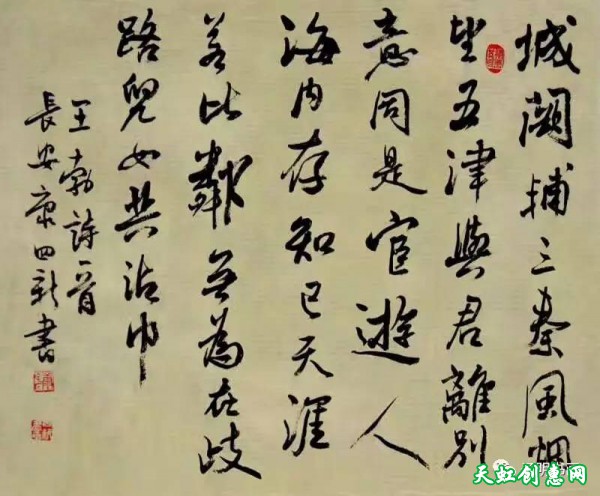 城闕輔三秦風烟
望五津與君離別
意同是宦遊人
海内存知己天涯
若比鄰無為在歧
路兒女共沾巾
王勃詩一首
長安康四新書
天虹创惠网